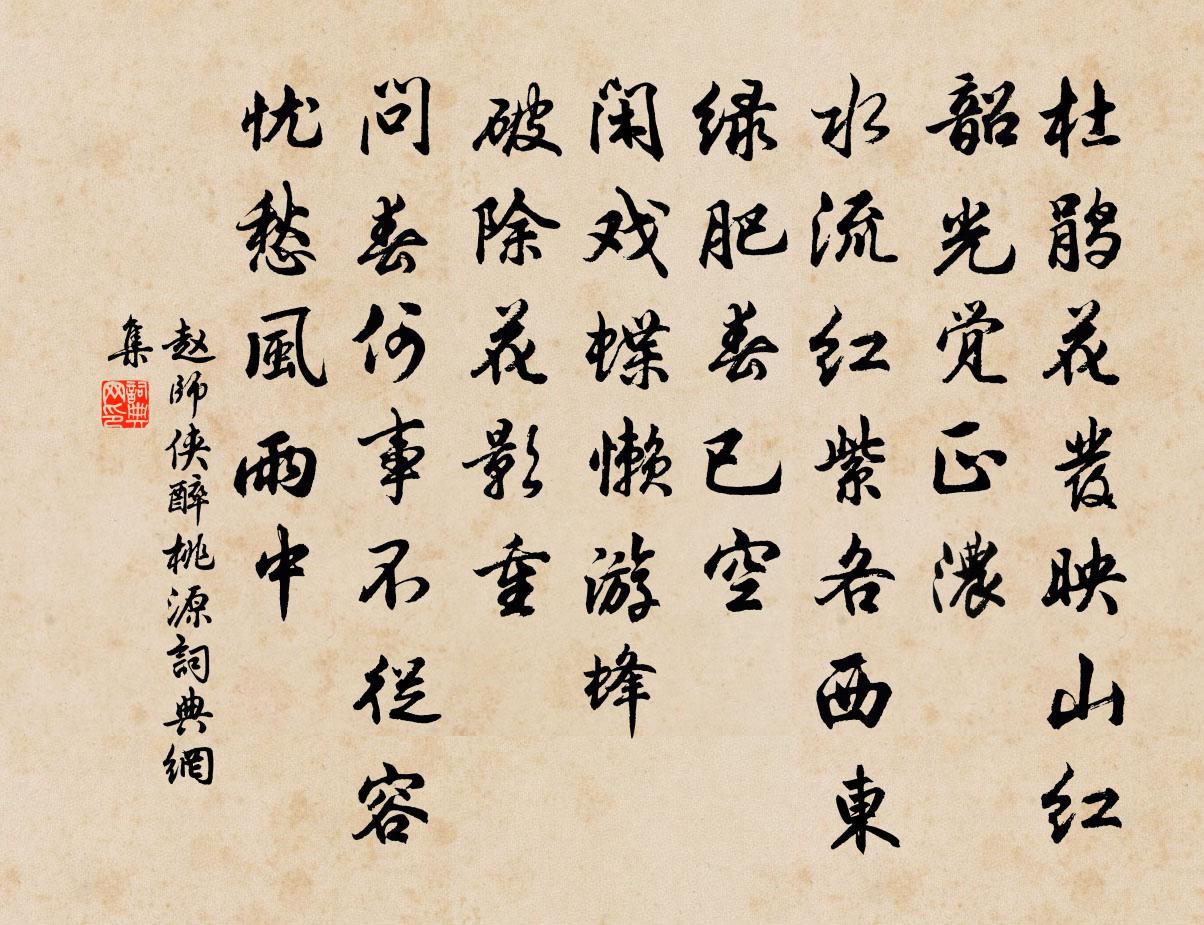 杜鹃花發映山红
韶光觉正濃
水流红紫各西東
绿肥春已空
闲戏蝶懒游蜂
破除花影重
问春何事不從容
忧愁風雨中
赵師侠醉桃源詞典網
集
詞典網印